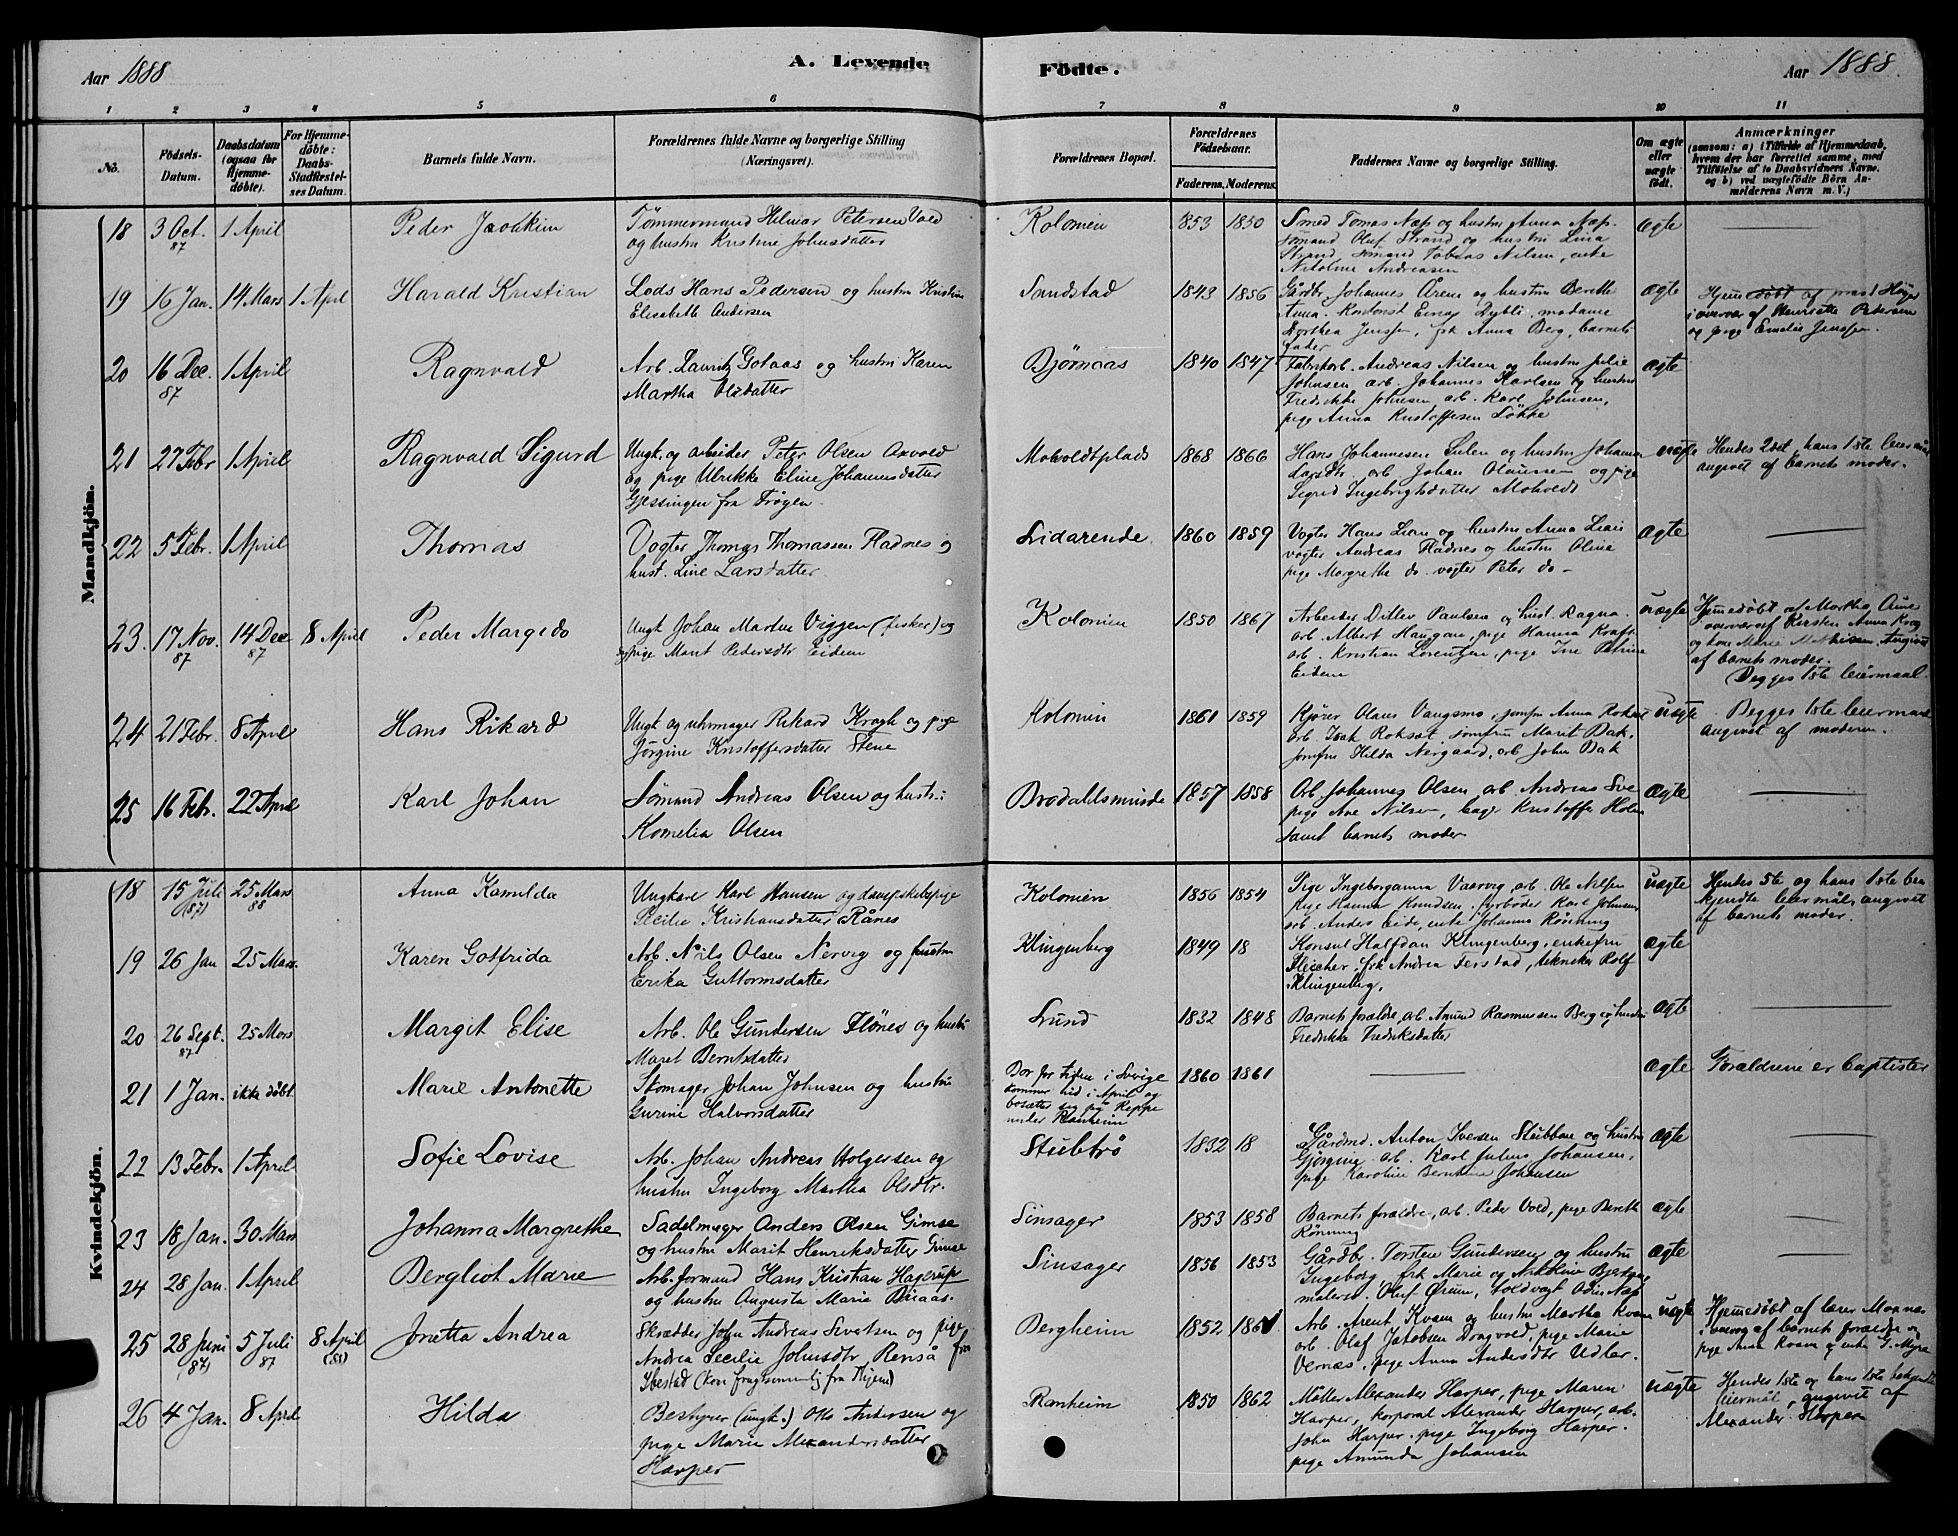 Aar 1888
A. Levende
Födte.
Aar 1888.
1 2 3 4 5 6 7 8 9 10 11
No.
Födsels-
Datum.
Daabsdatum
(ogsaa for
Hjemme-
döbte).
For Hjemme-
döbte:
Daabs-
Stadfæstel-
ses Datum.
Barnets fulde Navn.
Forældrenes fulde Navne og borgerlige Stilling
(Næringsvei).
Forældrenes Bopæl.
Forældrenes
Födselsaar.
Faderens. Moderens.
Faddernes Navne og borgerlige Stilling.
Om ægte
eller
uægte
født.
Anmærkninger
(saasom: a) i Tilfælde af Hjemmedaab,
hvem der har forrettet samme, med
Tilföielse af to Daabsvidners Navne,
og b) ved uægtefödte Börn An-
melderens Navn m. V.)
Mandkjön.
18 3 Oct. 87 1 April
Peder Joakim
Tømmermand Hilmar Petersen Vold
og hustru Kristine Johnsdatter
Kolonien 1853 1850
Smed Tomas Næss og hustru Anna Næss.
sömand Oluf Strand og hustru Lina
Strand, sömand Tobias Nilsen, enke
Nikoline Andreasen
ægte
19 16 Jan. 14 Mars 1 April
Harald Kristian
Lods Hans Pedersen og hustru Kristine
Elisabeth Andersen
Sandstad 1843 1856
Gårdbr. Johannes Ørene og hustru Berethe
Anna. Kondukt. Einar Dybli. madame
Dorthea Jenssen, frk Anna Berg, barnets
fader
ægte
Hjemedöbt af præst Høyer
i overvær af Henriette Pedersen
og pige Emelie Jenssen.
20 16 Dec. 87 1 April
Ragnvald
Arb. Lauritz Golaas og hustru Karen
Martha Olsdatter
Bjørnaas 1840 1847
Fabrikarb. Andreas Nilsen og hustru Julie
Johnsen arb. Johannes Karlsen og hustru
Fredrikke Johnsen, arb. Karl Johnsen,
pige Anna Kristoffersen Løkke
ægte
21 27 Febr 1 April
Ragnvald Sigurd
Ungk. og arbeider Peter Olsen Axvold
og pige Ulrikke Eline Johannesdatter
Gjessingen fra Frøyen
Moholdtplads 1868 1866
Hans Johannesen Sulen og hustru Johanna
Larsdtr, arb Johan Olaussen og pige
Sigrid Ingebrigtsdatter Moholdt
uægte
Hendes 2det, hans 1ste leiermål
angivet af barnets moder.
22 5 Febr. 1 April
Thomas
Vogter Thomas Thomassen Fladnes og
hust. Line Larsdatter
Lidarende. 1860 1859
Vogter Hans Lian og hustru Anna Lian
vogter Andreas Fladnes og hustru Olina
pige Margrethe do. vogter Peter do-
ægte
23. 17 Nov. 87 14 Dec 87 8 April
Peder Margido
Ungk Johan Martin Viggen (fisker) og
pige Marit Pedersdtr Eidem
Kolonien 1850 1867
Arbeider Ditlev Paulsen og hust. Ragna.
arb. Albert Haugan, pige Hanna Kraft
arb. Kristian Lorentzen, pige Ine Petrine
Eidem
uægte
Hjemedöbt af Martha Aune
overvær af Kirsten Anna Krog
og kone Marie Mathisen. Angivet
af barnets moder.
Begges 1ste leiermaal.
24 21 Febr. 8 April
Hans Rikard
Ungk og uhrmager Rikard Krogh og pige
Jørgine Kristoffersdatter Stene
Kolonien 1861 1859
Kjører Olaus Vangsmo, jomfru Anna Roksat
arb Isak Roksat jomfru Marit Bak,
jomfru Hilda Nergaard, arb John Bak
uægte
Begges 1ste leiermaal
angivet af moderen.
25 16 Febr. 22 April
Karl Johan
Sømand Andreas Olsen og hustru
Kornelia Olsen
Brodalsmunde 1857 1858
Arb Johannes Olsen, arb Andreas Sve
pige Ane Nilsen, bager Kristoffer Holm
samt barnets moder
ægte
Kvindekjön.
18 15 Juli (87) 25 Mars 88
Anna Kamilda
Ungkarl Karl Hansen og
Cecilie Kristiansdatter Rånes
Kolonien 1856 1854
Pige Ingeborganna Vaarvig, arb. Ole Nilsen
pige Hanna Knudsen, fyrbøder Karl Johnsen
arb. Anders Eide, enke Johanna Rønning
uægte
Hendes 5te og hans 1ste be-
kjendte leiermål, angivet
af barnets moder.
19 26 Jan 25 Mars.
Karen Gotfrida
Arb. Nils Olsen Nervig og hustru
Erika Guttormsdatter
Klingenberg 1849 18
Konsul Halfdan Klingenberg, enkefru
Fleischer, frk Andrea Ferstad, tekniker Rolf
Klingenberg.
ægte
20 26 Sept. 87 25 Mars
Margit Elise
Arb. Ole Gundersen Flönes og hustru
Maret Berntsdatter
Lund 1832 1848
Barnets forældre, arb. Amund Rasmussen Berg og hustru
Fredrikke Fredriksdatter
ægte
21 1 Jan. ikke döbt
Marie Antonette
Skomager Johan Johnsen og hustru
Gurine Halvorsdatter
Bor for tiden i Sverige
kommer hid i April og
bosætter sig på Reppe
under Ranheim
1860 1861
ægte
Forældrene er baptister
22 13 Febr. 1 April
Sofie Lovise
Arb. Johan Andreas Holgersen og
hustru Ingeborg Martha Olsdtr.
Stubtrø 1832 18
Gårdmd. Anton Iversen Stubban og hustru
Gjørgine. arb. Karl Julius Johansen,
pige Karoline Berntine Johansen
ægte
23 18 Jan. 30 Mars
Johanna Margrethe
Sadelmager Anders Olsen Gimse
og hustru Marit Henriksdatter Gimse
Sinsager 1853 1858
Barnets forældre, arb. Peder Vold, pige Bereth
Rönning
ægte
24 28 Jan. 1 April
Bergliot Marie
Arb. formand Hans Kristian Hagerup
og hustru Augusta Marie Buaas.
Sinsager 1856 1853
Gårdbr. Torsten Gundersen og hustru
Ingeborg, frk Marie og
malersv. Oluf Ørum, toldvagt Odin Næss
ægte
25 28 Juni (87) 5 Juli 87 8 April (88)
Jonetta Andrea
Skrædder John Andreas Sivertsen og pige
Andrea Cecilie Johnsdtr, Renså fra
Ibestad
Bergheim 1852 1861
Arb. Arent Kvam og hustru Martha Kvam
arb. Olaf Jakobsen Dragvold, pige Marie
Vernes, pige Anna Andersdtr Udler.
uægte
Hjemedöbt af lærer Moxnes
i overvær af barnets forældre og
pige Anna Kvam og enke G. Myra
26 4 Jan. 8 April
Hilda
Bestyrer (ungk.) Otto Andersen og
pige Marie Alexandersdatter
Harper
Ranheim 1850 1862
Møller Alexander Harper, pige Maren
Harper, korporal Alexander Harper, arb.
John Harper. pige Ingeborg Harper.
pige Amunda Johansen
uægte
Hendes 1ste og hans 1ste bekjendte
leiermål, angivet af
Alexander Harper